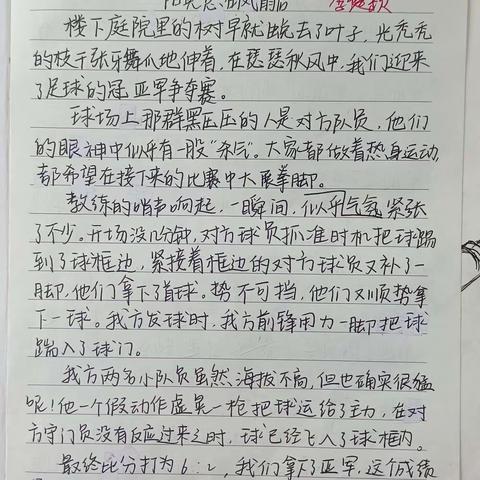 楼下庭院里的树早就蜕去了叶子,光秃秃
的枝干张牙舞爪地伸着,在瑟瑟秋风中,我们迎来
了足球的冠亚军争夺赛。
球场上那群黑压压的人是对方队员,他们
的眼神中似乎有一股“杀气”。大家都做着热身运动,
都希望在接下来的比赛中大展拳脚。
教练的哨声响起,一瞬间,似乎气氛紧张
了不少。开场没几分钟,对方球员抓准时机把球踢
到了球框边,紧接着框边的对方球员又补了一
脚,他们拿下了首球。势不可挡,他们又顺势拿
下一球。我方发球时,我方前锋用力一脚把球
踹入了球门。
我方两名小队员虽然海拔不高,但也确实很猛
呢!他一个假动作虚晃一枪把球运给了主力,在对
方守门员没有反应过来之时,球已经飞入了球框内。
最终比分打为6:2,我们拿下了亚军,这个成绩